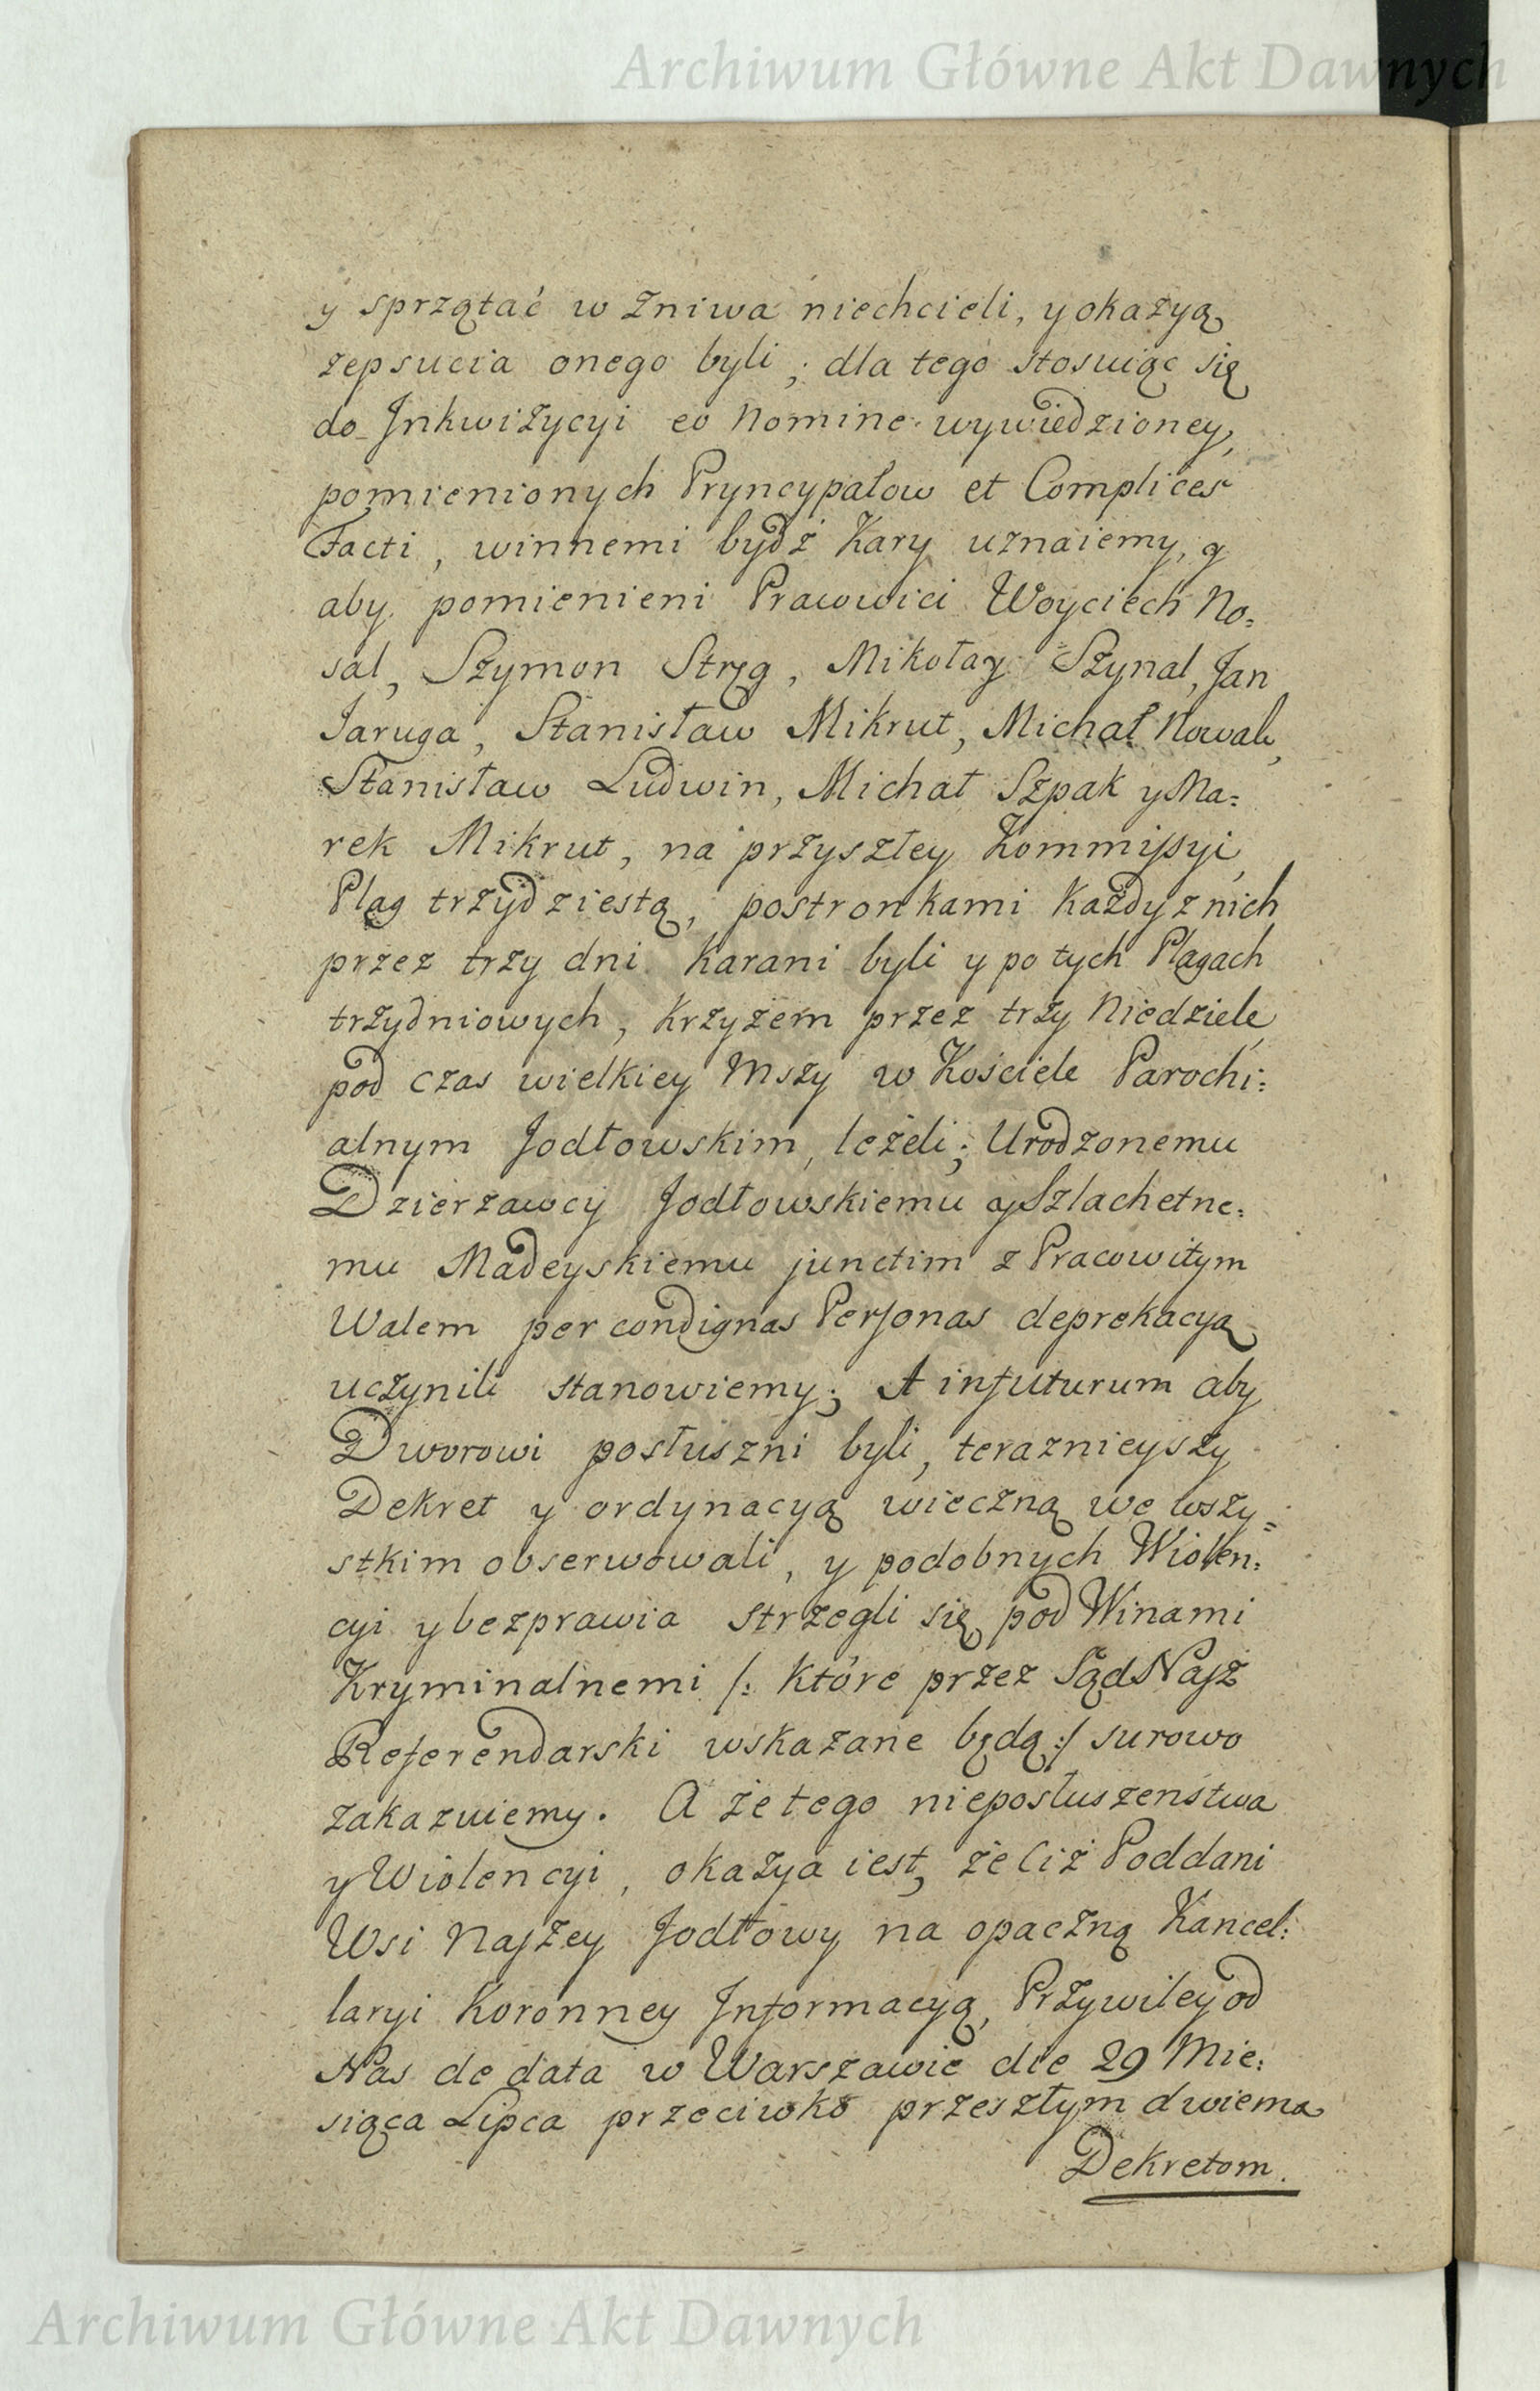 Archiwum Główne Akt Dawnych
y sprzątać w żniwa niechcieli, y okazyą
zepsucia onego byli; dla tego stosuiąc się
do Inkwizycyi eo Nomine wywiedzioney,
pomienionych Pryncypałow et Complices
Facti, winnemi bydź Kary uznaiemy, y
aby pomienieni Pracowici Woyciech No=
sal, Szymon Stręg, Mikołay Szynal, Jan
Jaruga, Stanisław Mikrut, Michał Nowak,
Stanisław Ludwin, Michał Szpak y Ma=
rek Mikrut, na przyszłey Kommissyi,
Plag trzydziestą, postronkami Każdy z nich
przez trzy dni Karani byli y po tych Plagach
trzydniowych, Krzyżem przez trzy Niedziele
pod czas wielkiey Mszy w Kościele Parochi=
alnym Jodłowskim, leżeli; Urodzonemu
Dzierzawcy Jodłowskiemu y Szlachetne=
mu Madeyskiemu junctim z Pracowitym
Walem per condignas Personas deprekacyą
uczynili stanowiemy; A infuturum aby
Dworowi posłuszni byli, teraznieyszy
Dekret y ordynacyą wieczną we wszy=
stkim obserwowali, y podobnych Wiolen=
cyi y bezprawia strzegli się, pod Winami
Kryminalnemi /: Które przez Sąd Nasz
Referendarski wskazane będą :/ surowo
zakazuiemy. A że tego nieposłuszenstwa
y Wiolencyi, okazya iest, że Ciż Poddani
Wsi Naszey Jodłowy na opaczną Kancel=
laryi Koronney Informacyą, Przywiley od
Nas de data w Warszawie die 29 Mie=
siąca Lipca przeciwko przeszłym dwiema
Dekretom.
Archiwum Główne Akt Dawnych